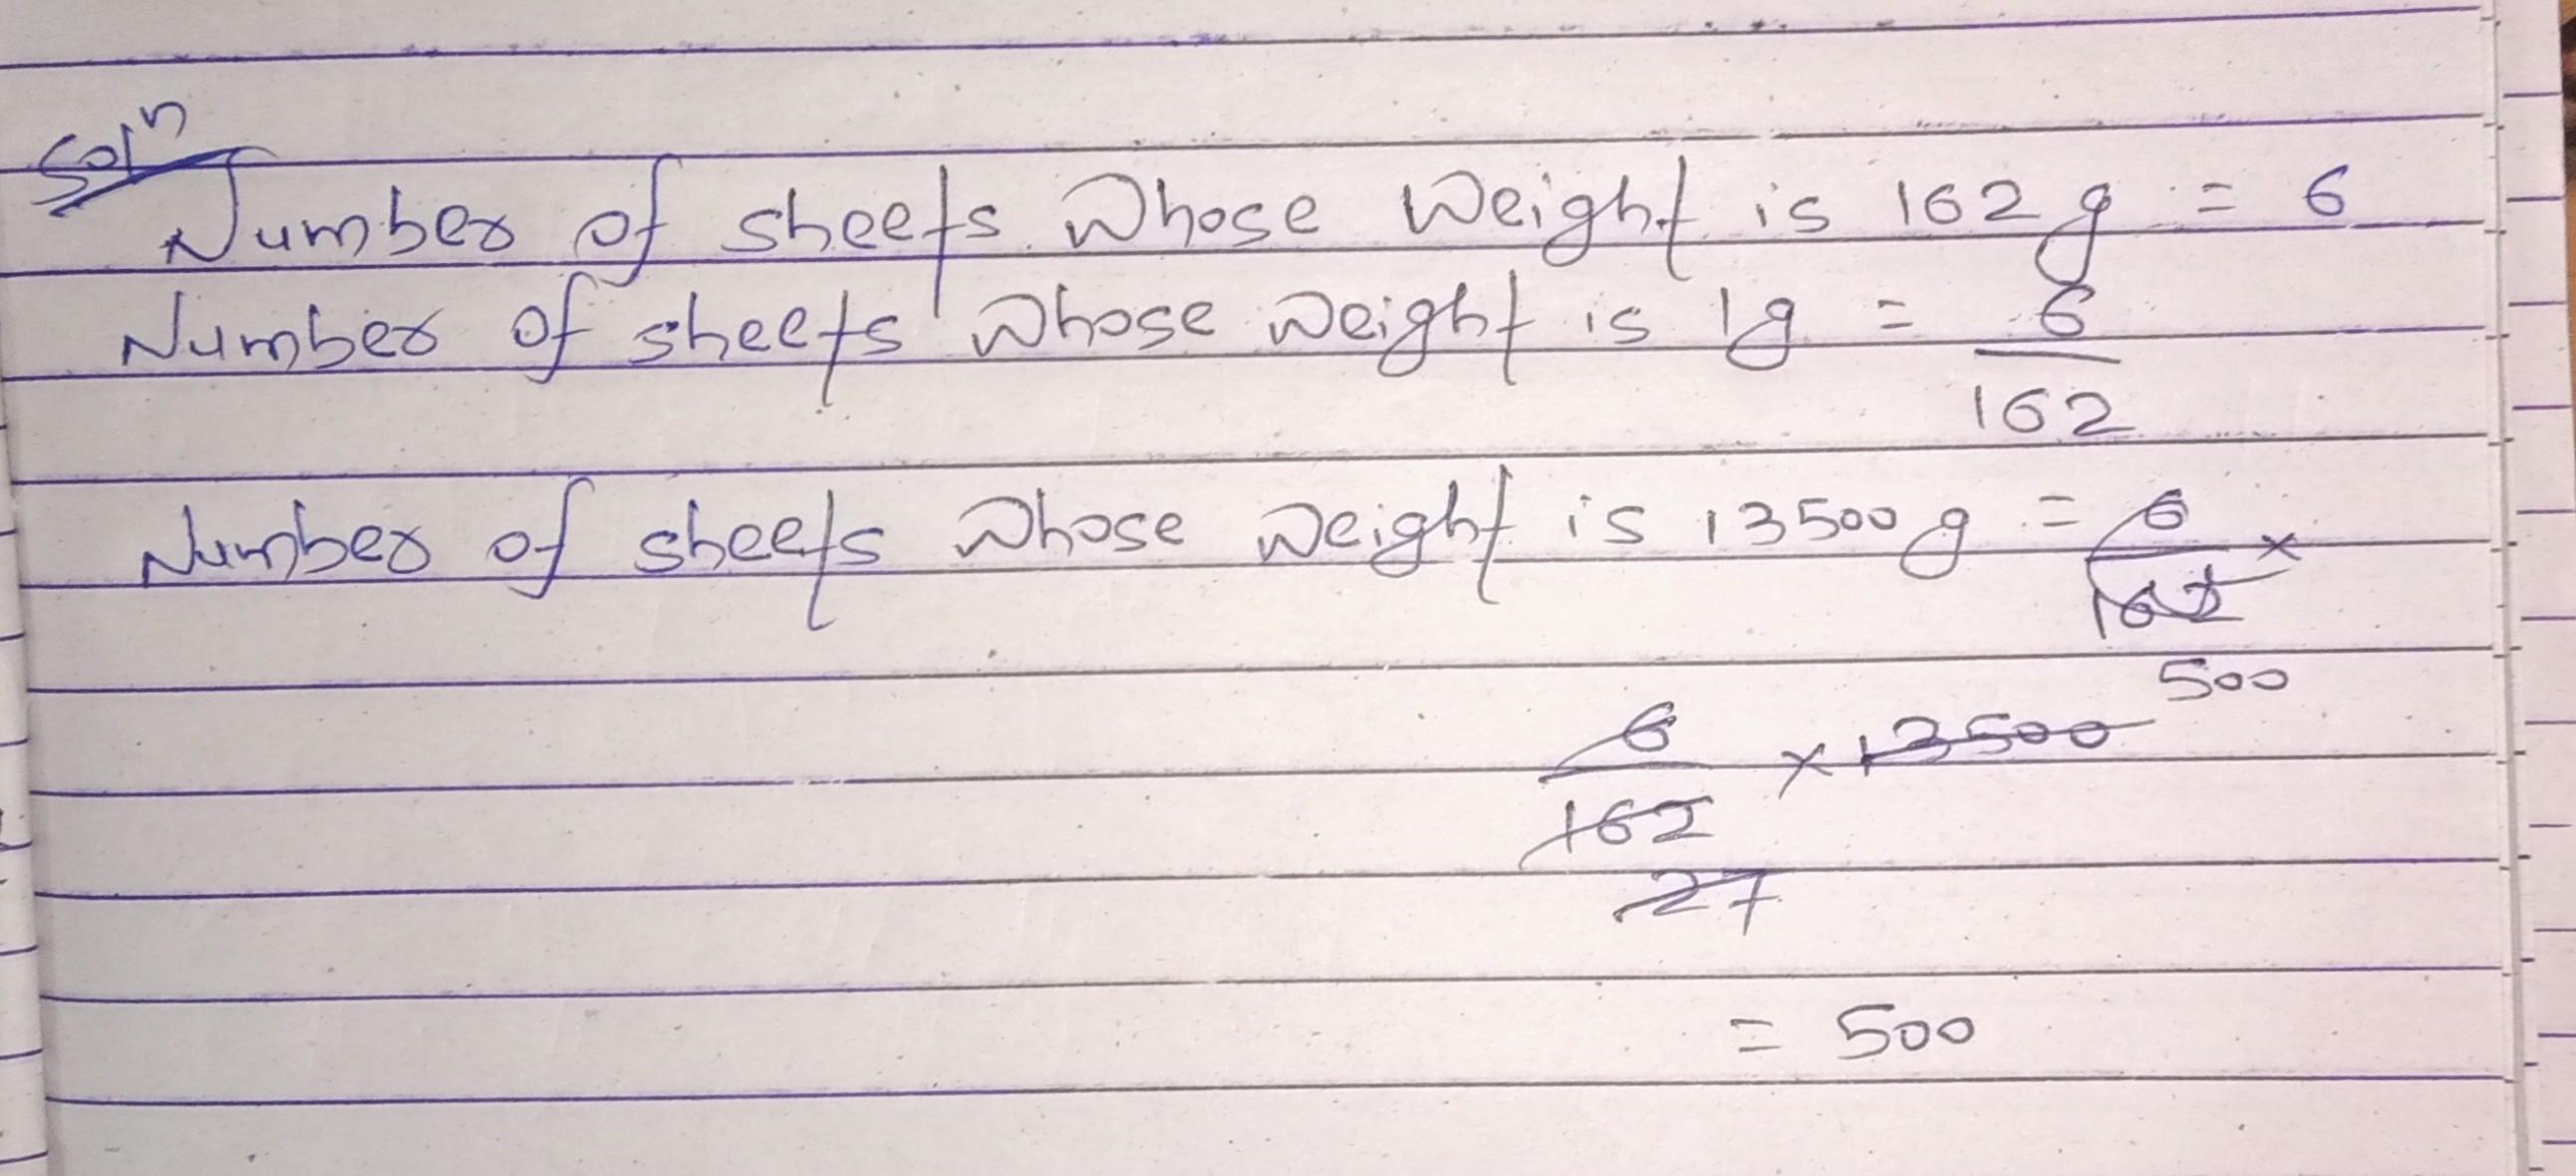 Solⁿ
Number of sheets whose weight is 162 g = 6
Number of sheets whose weight is 1g = 6
162
Number of sheets whose weight is 13500 g = 6 ×
162
500
6 × 13500
162
27
= 500